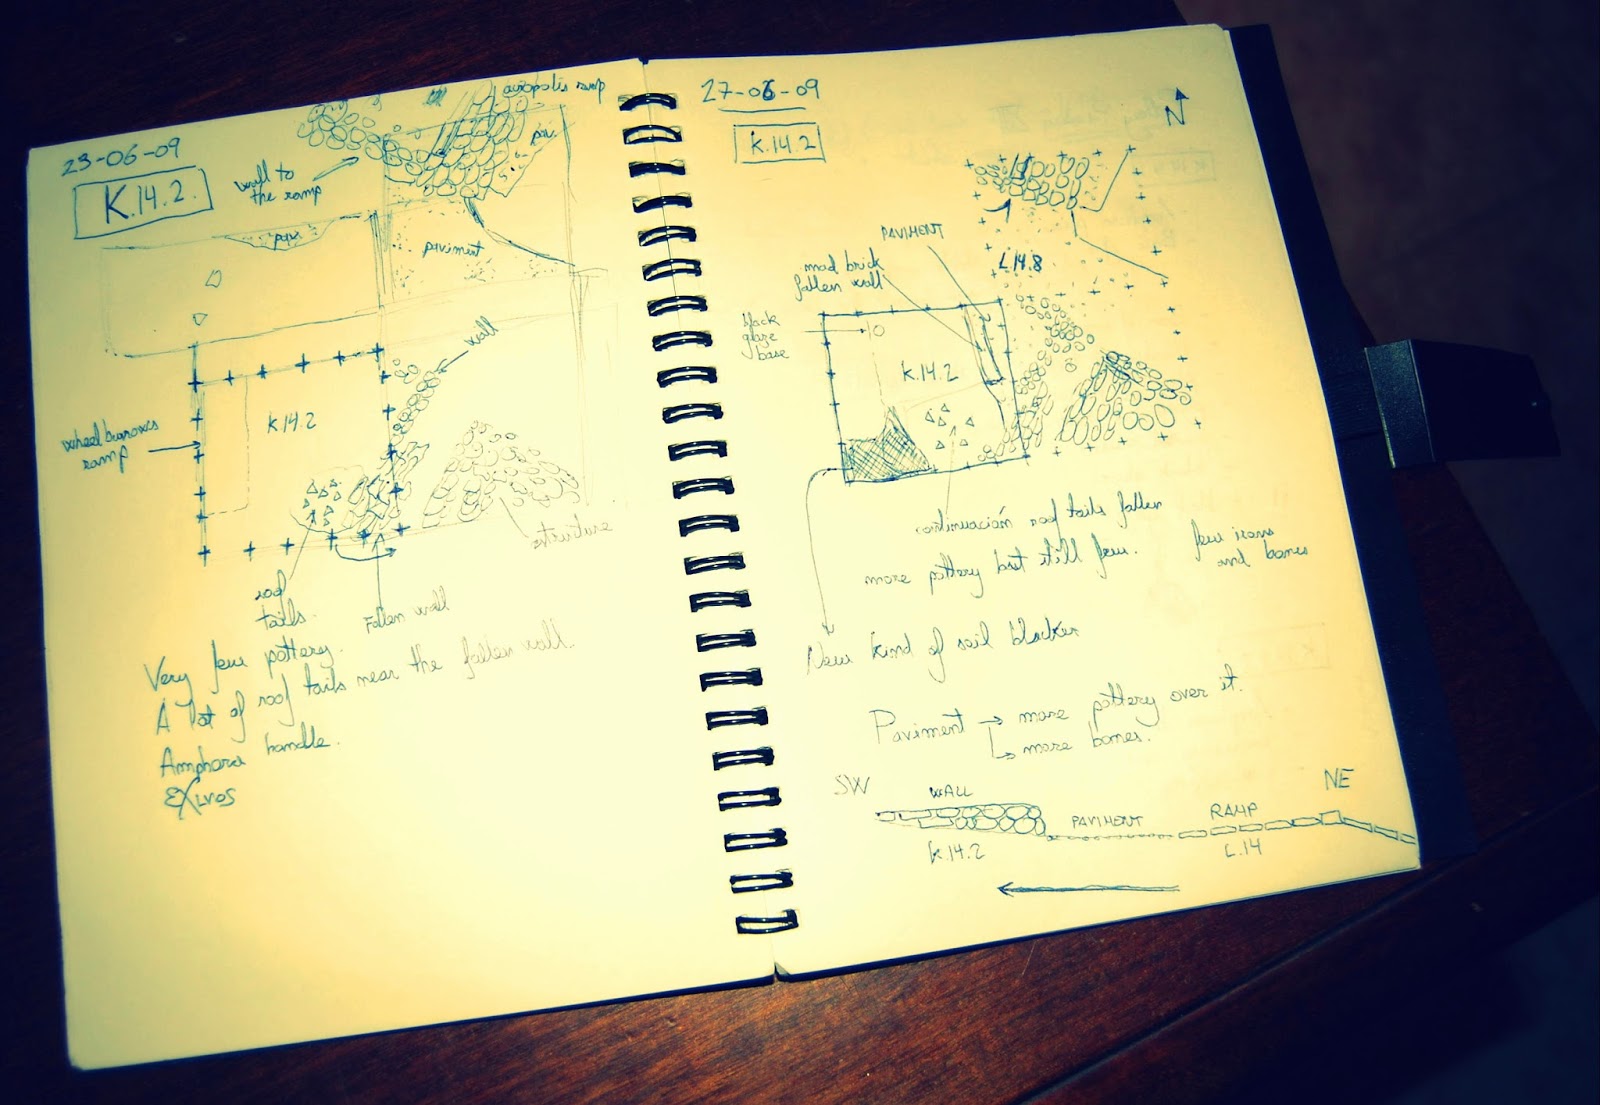 23-06-09
K.14.2.
acropolis ramp
wall to
the ramp
pav.
pav.
paviment
wall
wheel barrows
ramp
K.14.2
structure
roof
tails.
Fallen wall
Very few pottery.
A lot of roof tails near the fallen wall.
Amphora handle.
27-06-09
K.14.2
N
PAVIMENT
mad brick
fallen wall
L.14.8
black
glaze
base
K.14.2
continuación roof tails fallen
more pottery but still few.
few irons
and bones
New kind of soil blacker
Paviment → more pottery over it.
↳ more bones.
SW
NE
WALL
PAVIMENT
RAMP
K.14.2
L.14